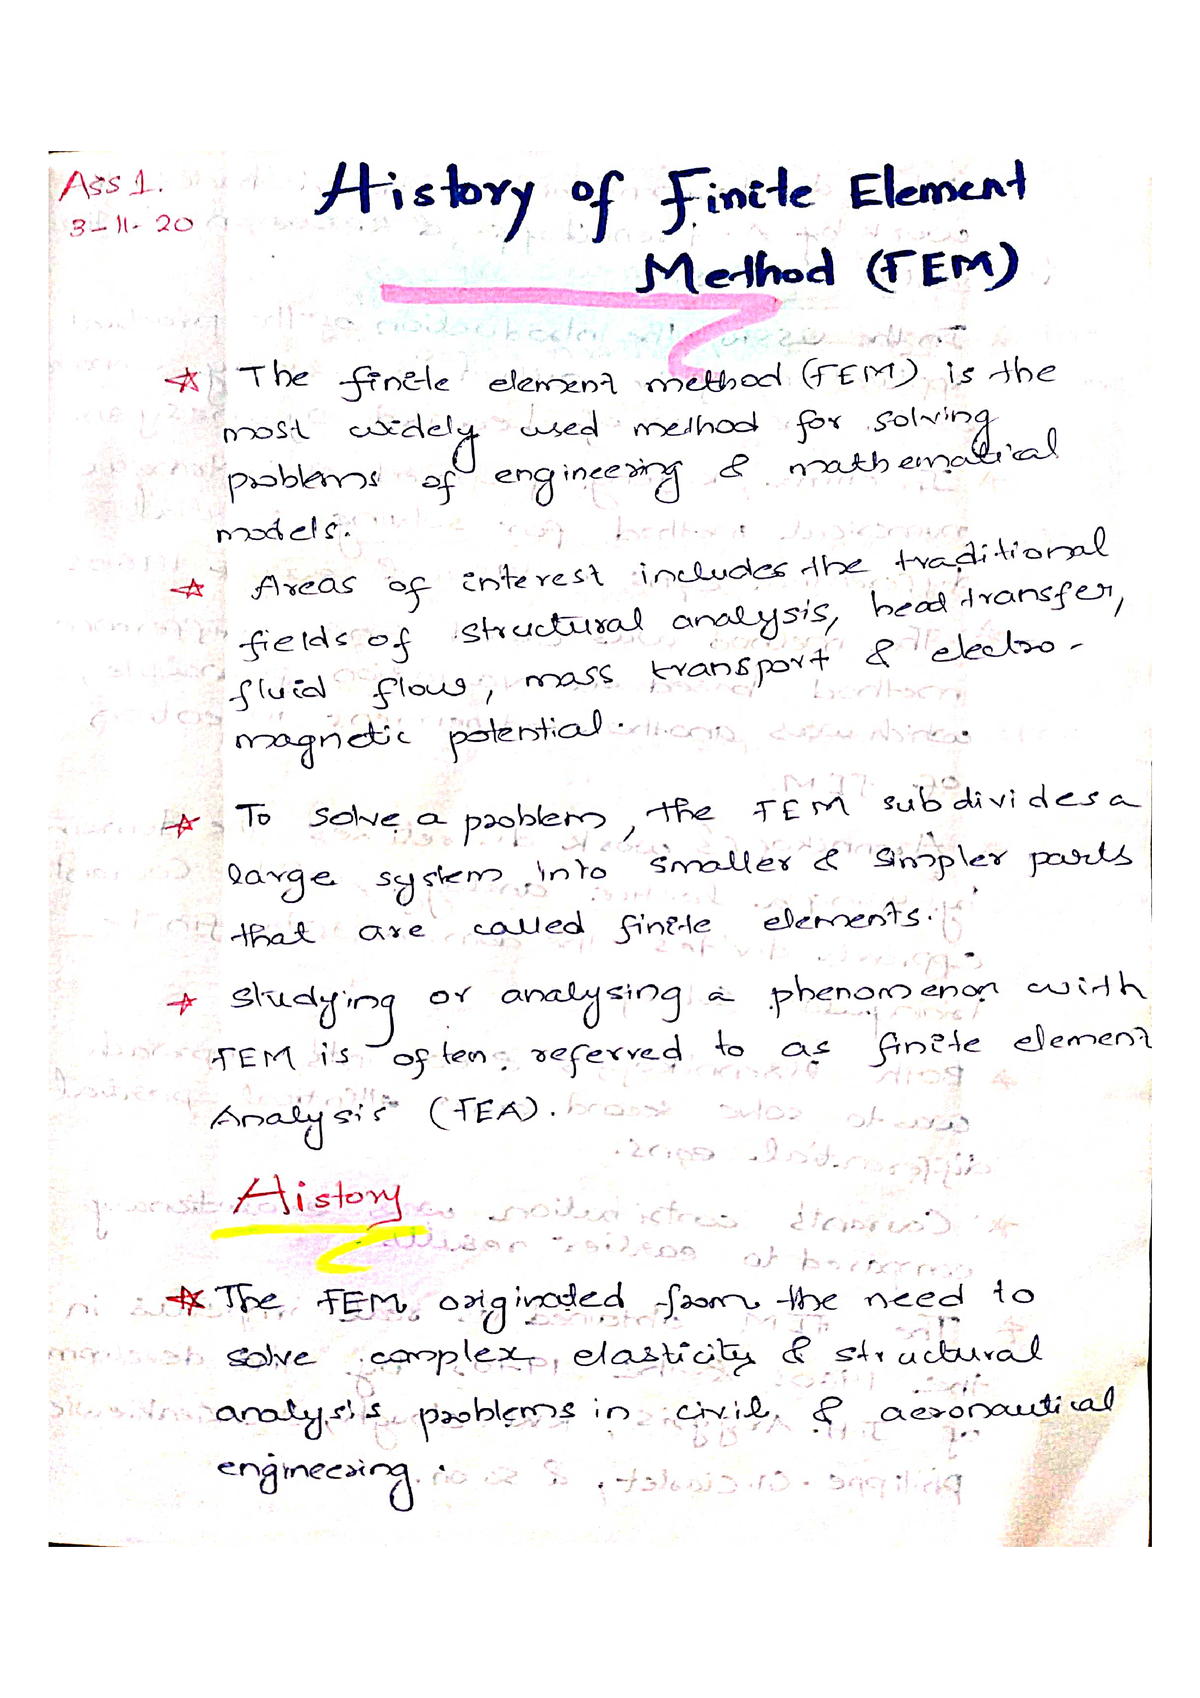 Ass 1.
3-11-20
History of Finite Element
Method (FEM)
The finite element method (FEM) is the
most widely used method for solving
problems of engineering & mathematical
models.
Areas of interest includes the traditional
fields of structural analysis, head transfer,
fluid flow, mass transport & electro-
magnetic potential.
To solve a problem, the FEM subdivides a
large system into smaller & simpler parts
that are called finite elements.
studying or analysing a phenomenon with
FEM is often referred to as finite element
Analysis (FEA).
History
The FEM originated from the need to
solve complex elasticity & structural
analysis problems in civil & aeronautical
engineering.